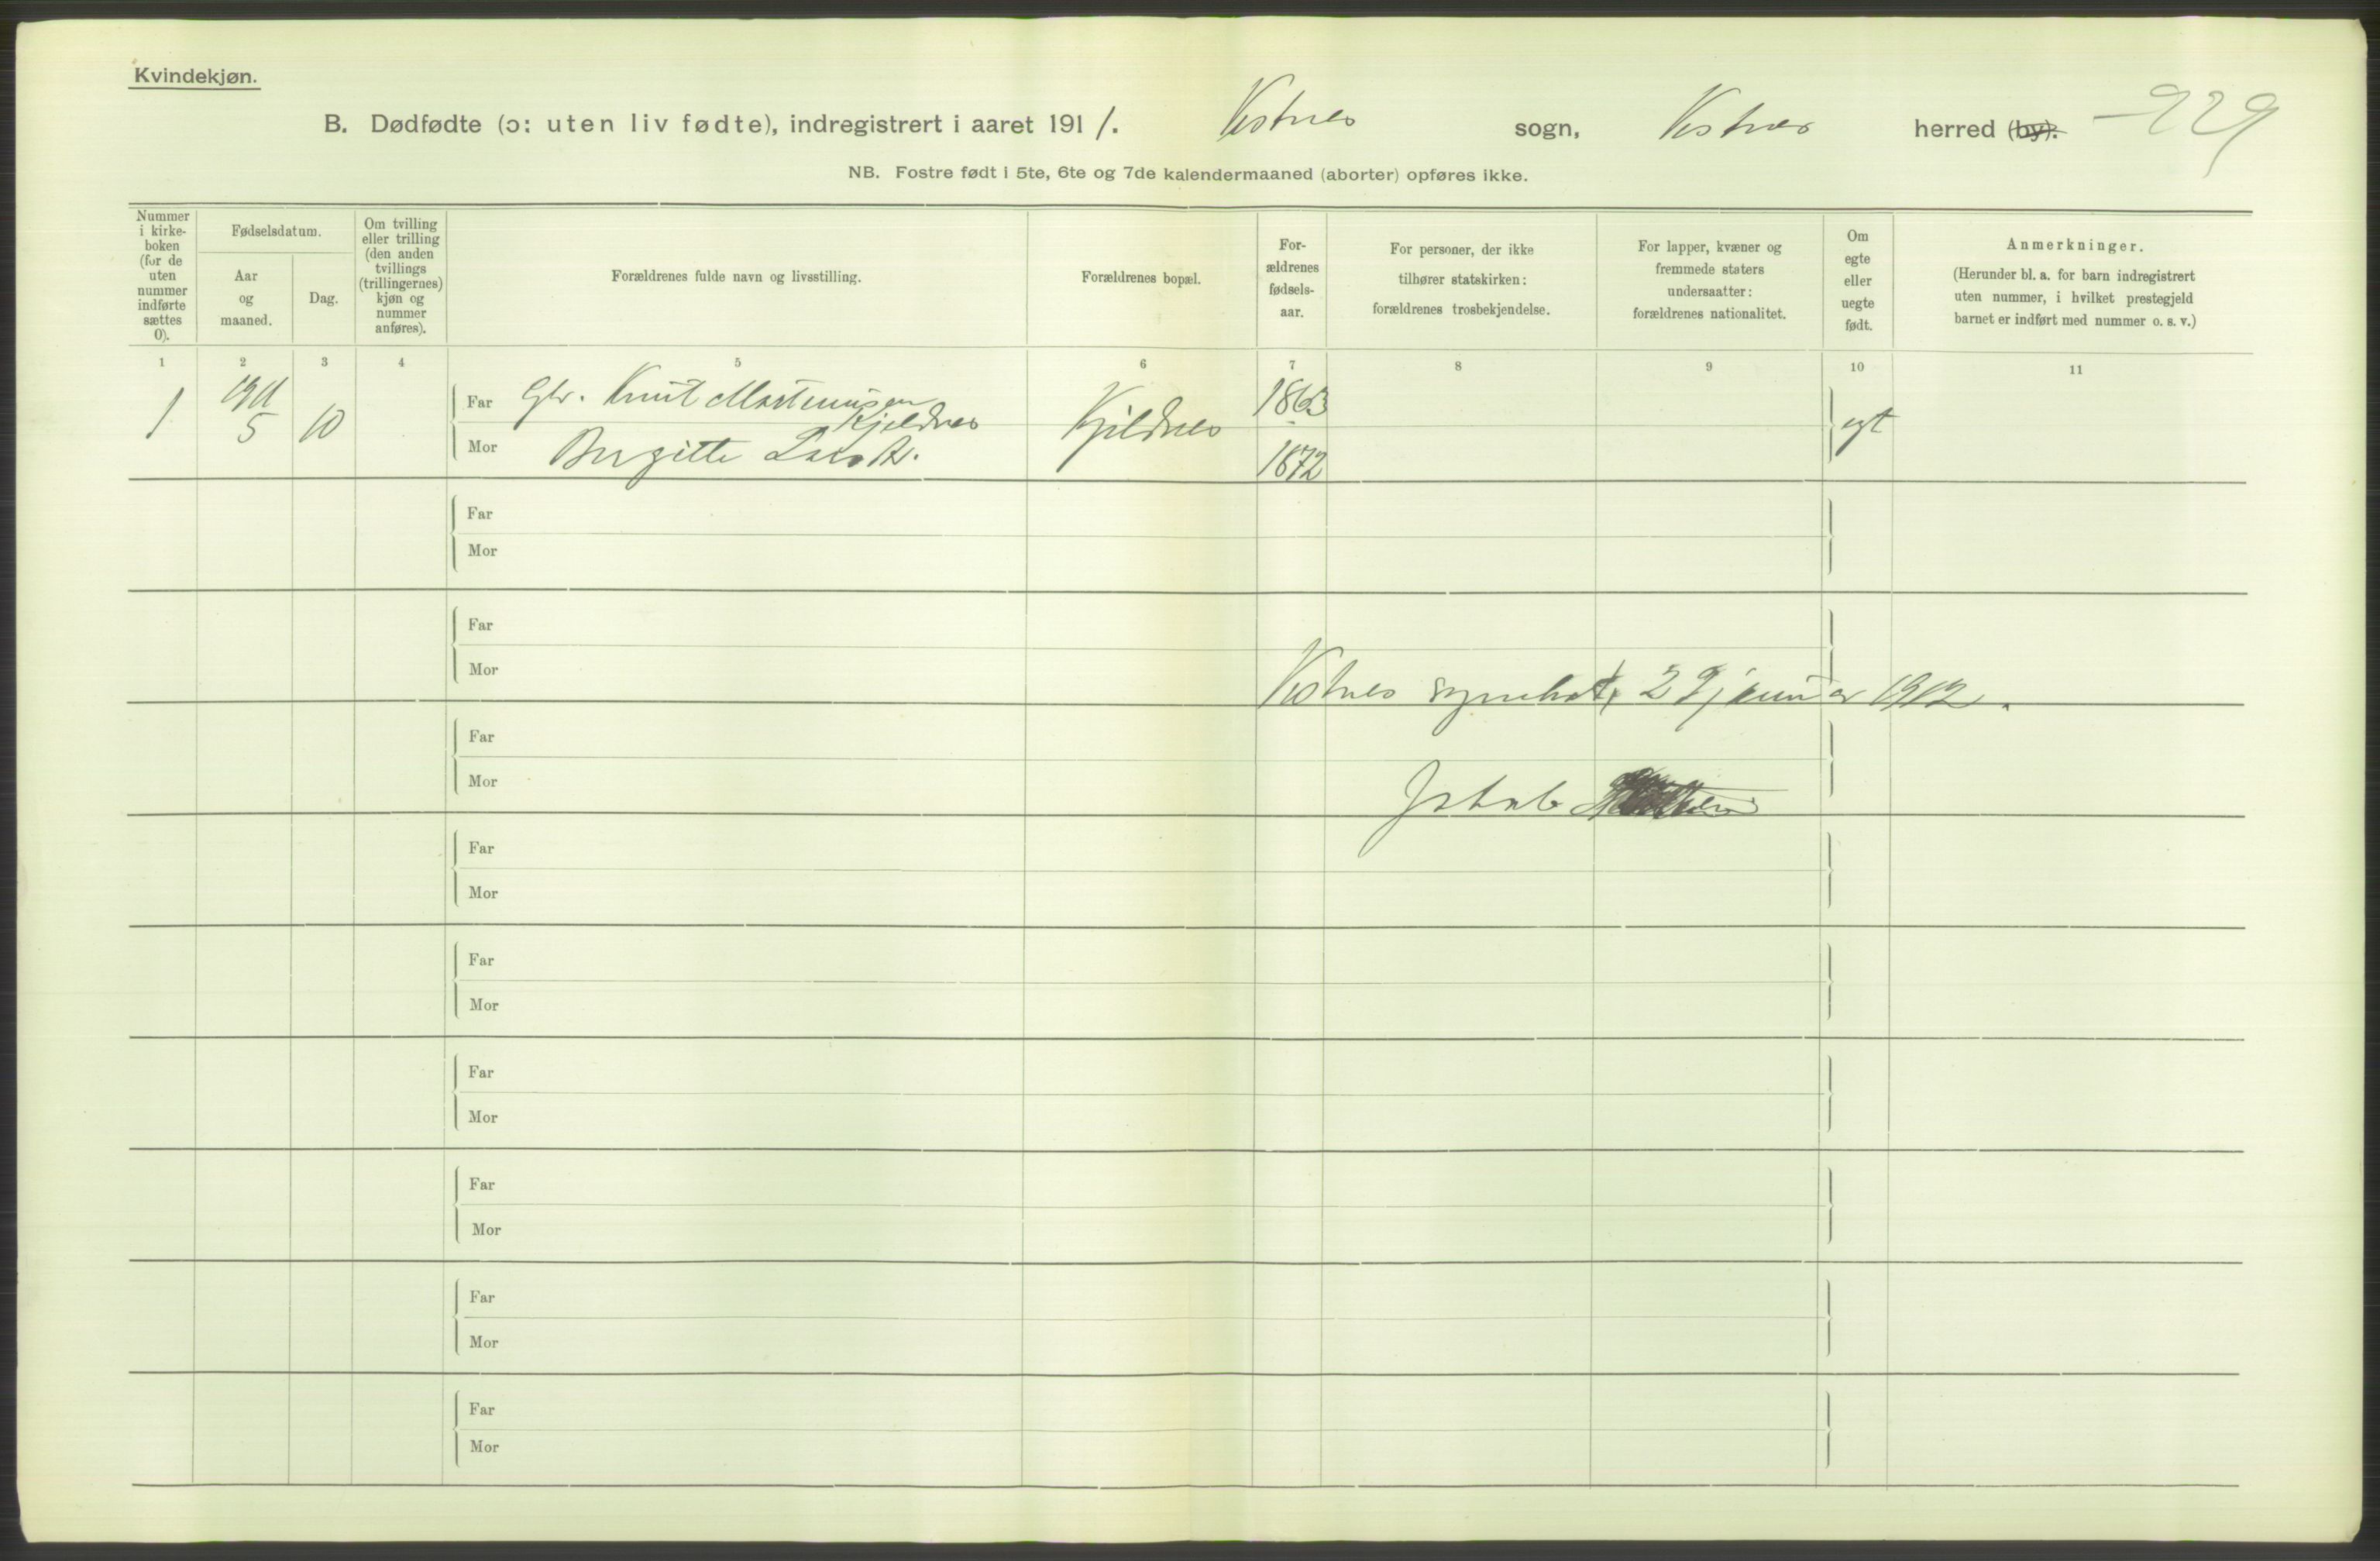 Kvindekjøn.
B. Dødfødte (ɔ: uten liv fødte), indregistrert i aaret 1911. Vestnes sogn, Vestnes herred (by). 229
NB. Fostre født i 5te, 6te og 7de kalendermaaned (aborter) opføres ikke.
Nummer
i kirke-
boken
(for de
uten
nummer
indførte
sættes
0).
Fødselsdatum.
Aar
og
maaned.
Dag.
Om tvilling
eller trilling
(den anden
tvillings
(trillingernes)
kjøn og
nummer
anføres).
Forældrenes fulde navn og livsstilling.
Forældrenes bopæl.
For-
ældrenes
fødsels-
aar.
For personer, der ikke
tilhører statskirken:
forældrenes trosbekjendelse.
For lapper, kvæner og
fremmede staters
undersaatter:
forældrenes nationalitet.
Om
egte
eller
uegte
født.
Anmerkninger.
(Herunder bl. a. for barn indregistrert
uten nummer, i hvilket prestegjeld
barnet er indført med nummer o. s. v.)
1 2 3 4 5 6 7 8 9 10 11
1 1911 5 10
Far Gbr. Knut Martinusen
Kjeldnes
Mor Birgitte
Kjeldnes
1863
1872
egt
Far
Mor
Far
Mor
Vestnes 29 januar 1912.
Far
Mor
Jakob
Far
Mor
Far
Mor
Far
Mor
Far
Mor
Far
Mor
Far
Mor